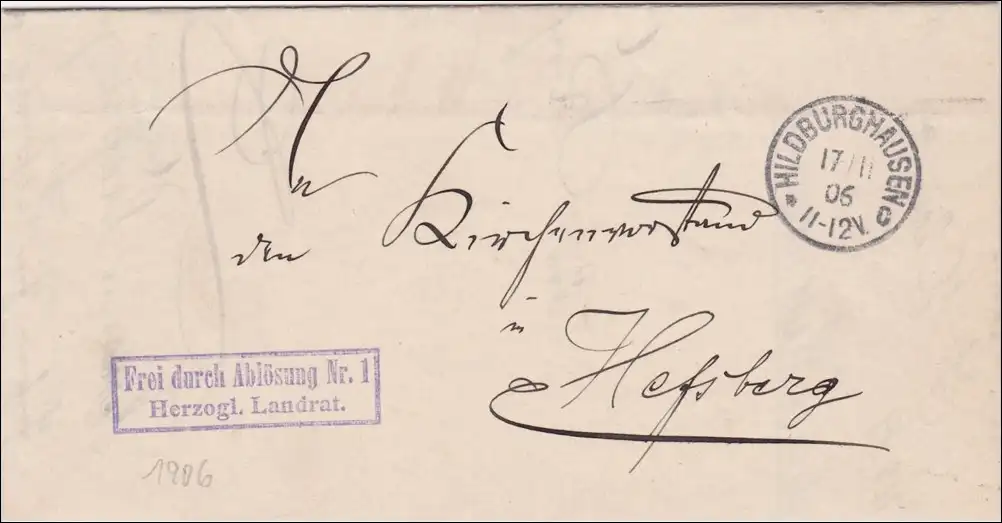 An
den Kirchenvorstand
in
Heßberg
HILDBURGHAUSEN
17/11
06
11-12V.
* c
Frei durch Ablösung Nr. 1
Herzogl. Landrat.
1906